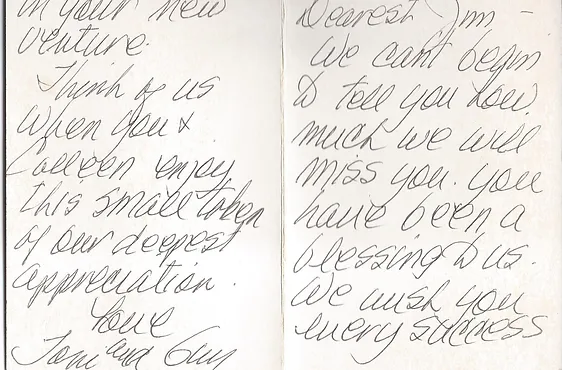 Dearest Jim -
We can't begin
to tell you how
much we will
miss you. you
have been a
blessing to us.
We wish you
every success
in your new
venture.
Think of us
when you &
Colleen enjoy
this small token
of our deepest
appreciation.
Love
Toni and Guy